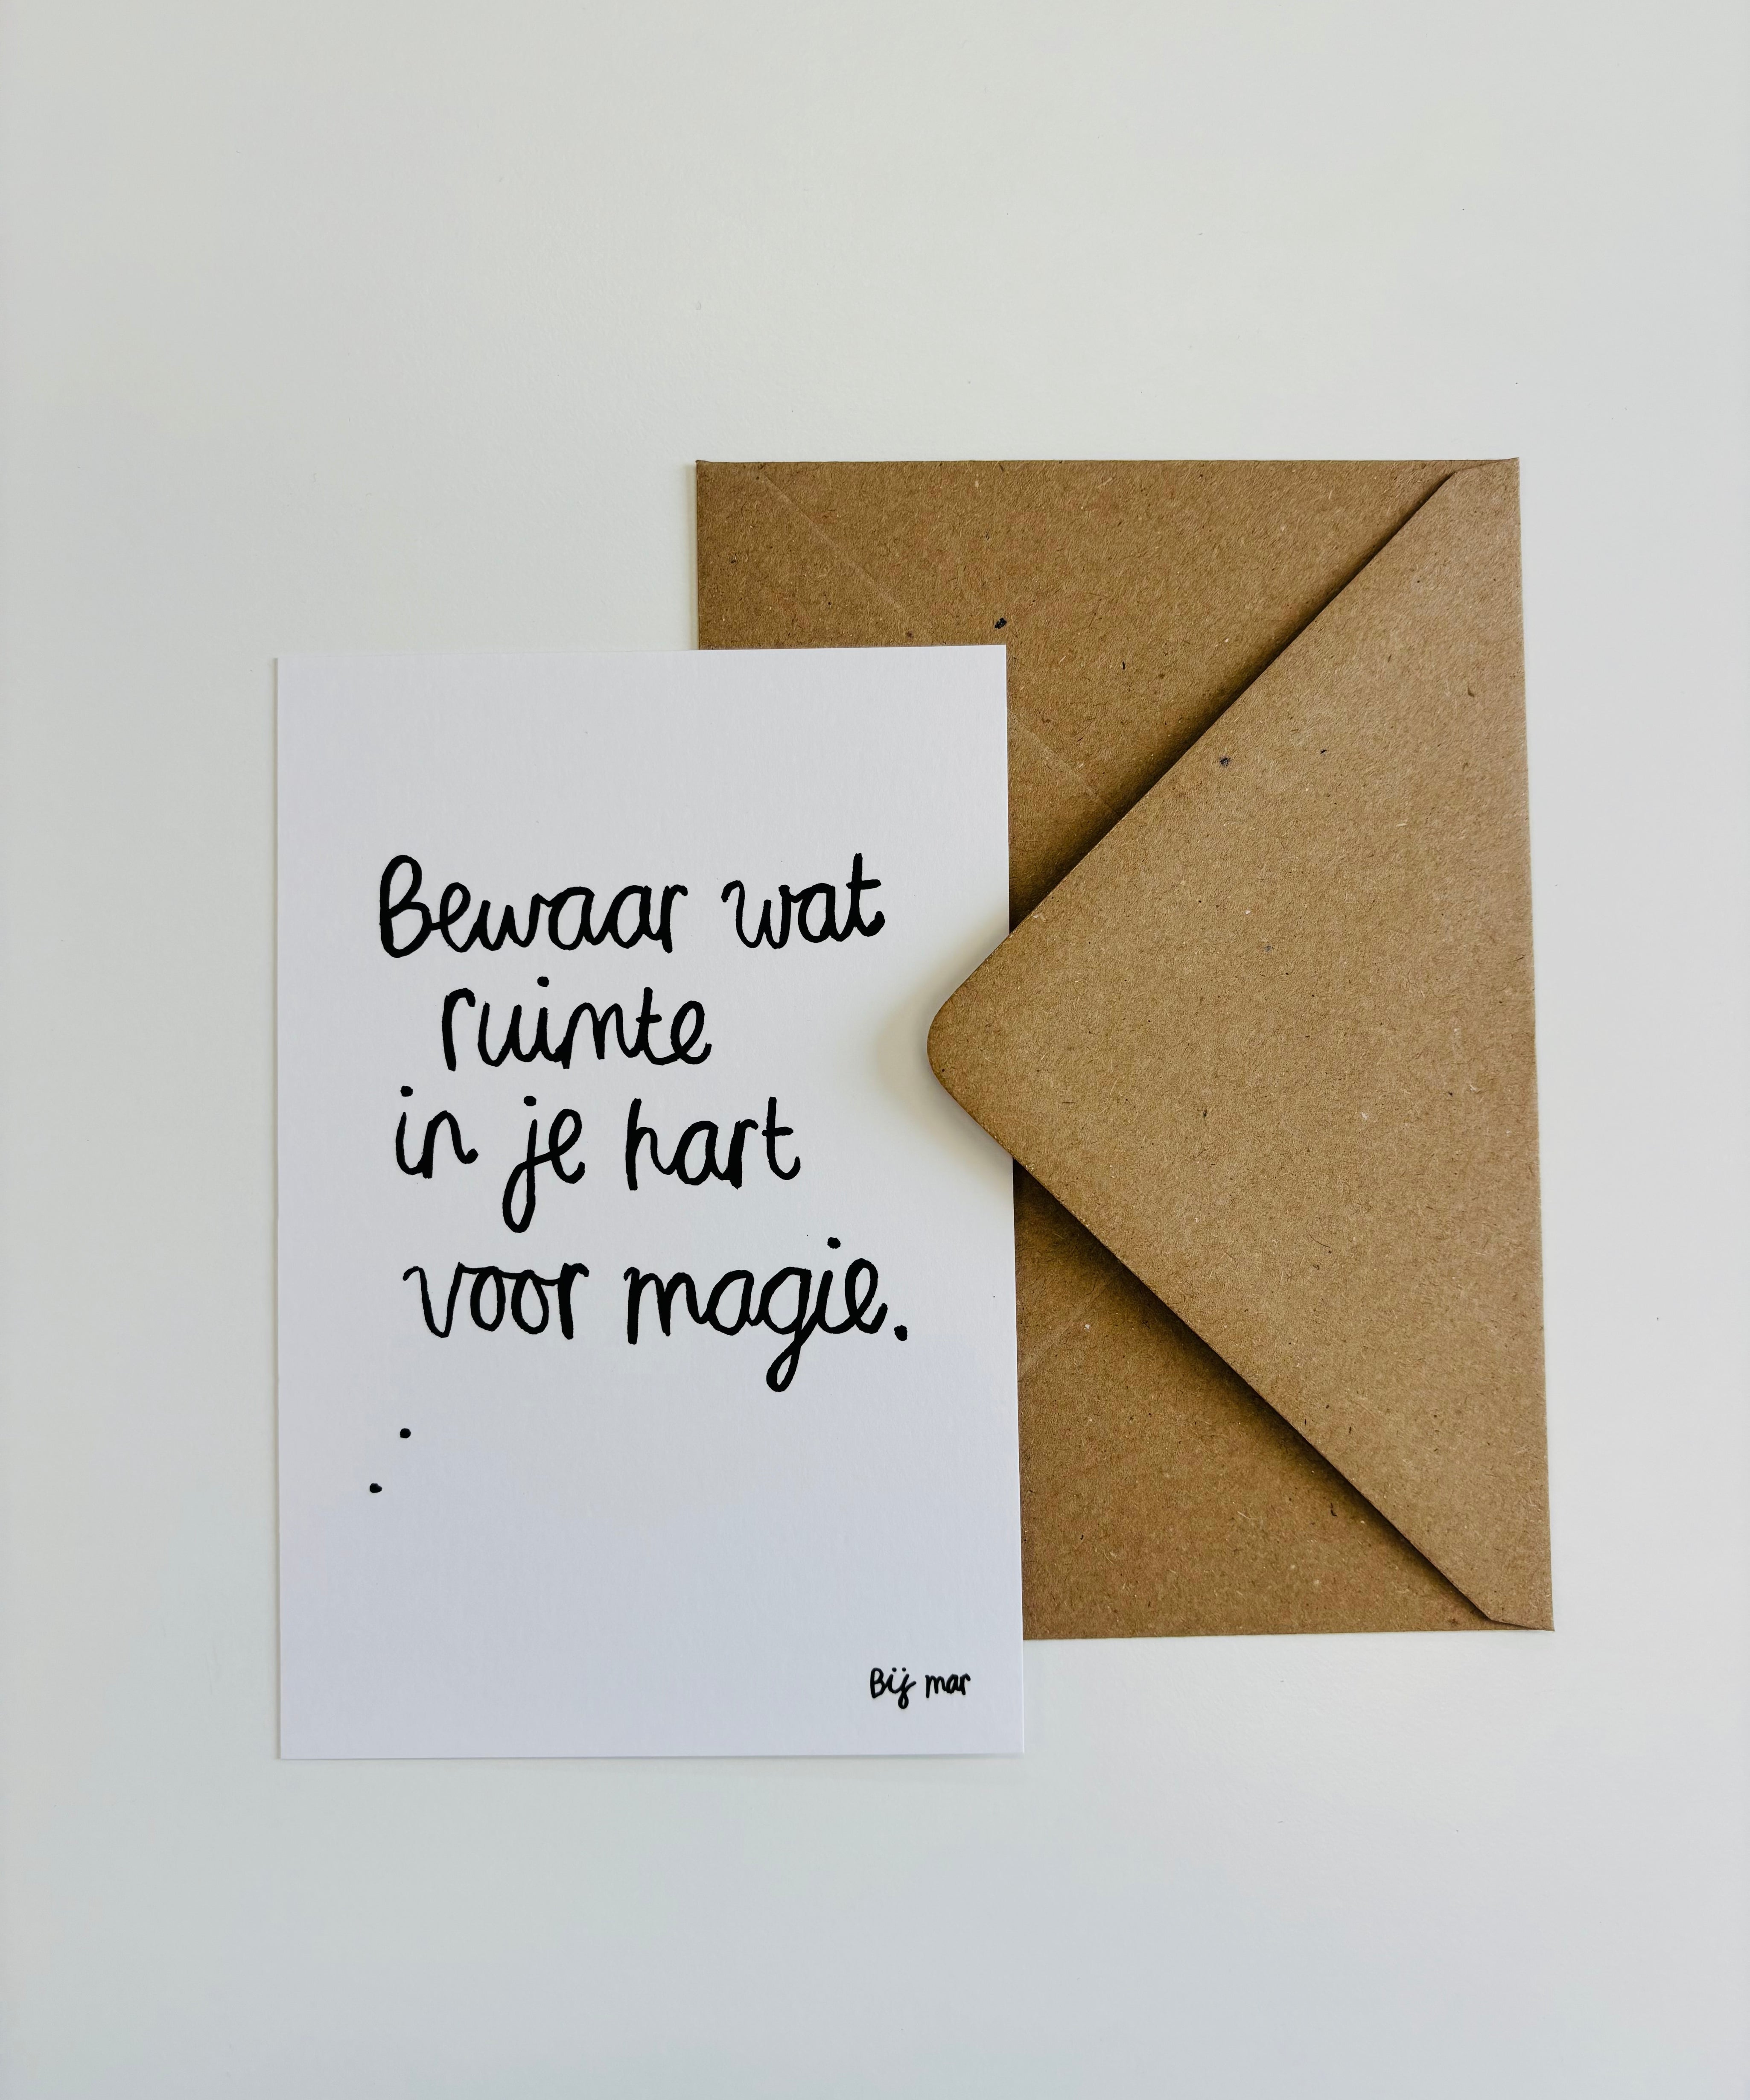 Bewaar wat
ruimte
in je hart
voor magie.
Bij mar